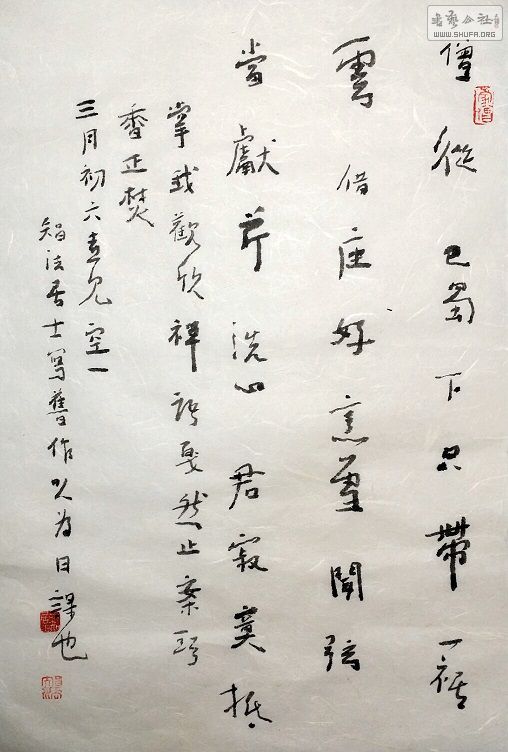 書藝公社
WWW.SHUFA.ORG
僧從巴蜀下只帶一裾
雲借座好聞弦
當獻芹洗心君寂莫抵
掌我歡欣禪語戛然止案頭
香正焚
三月初六喜見空一
智法居士寫舊作以為日課也